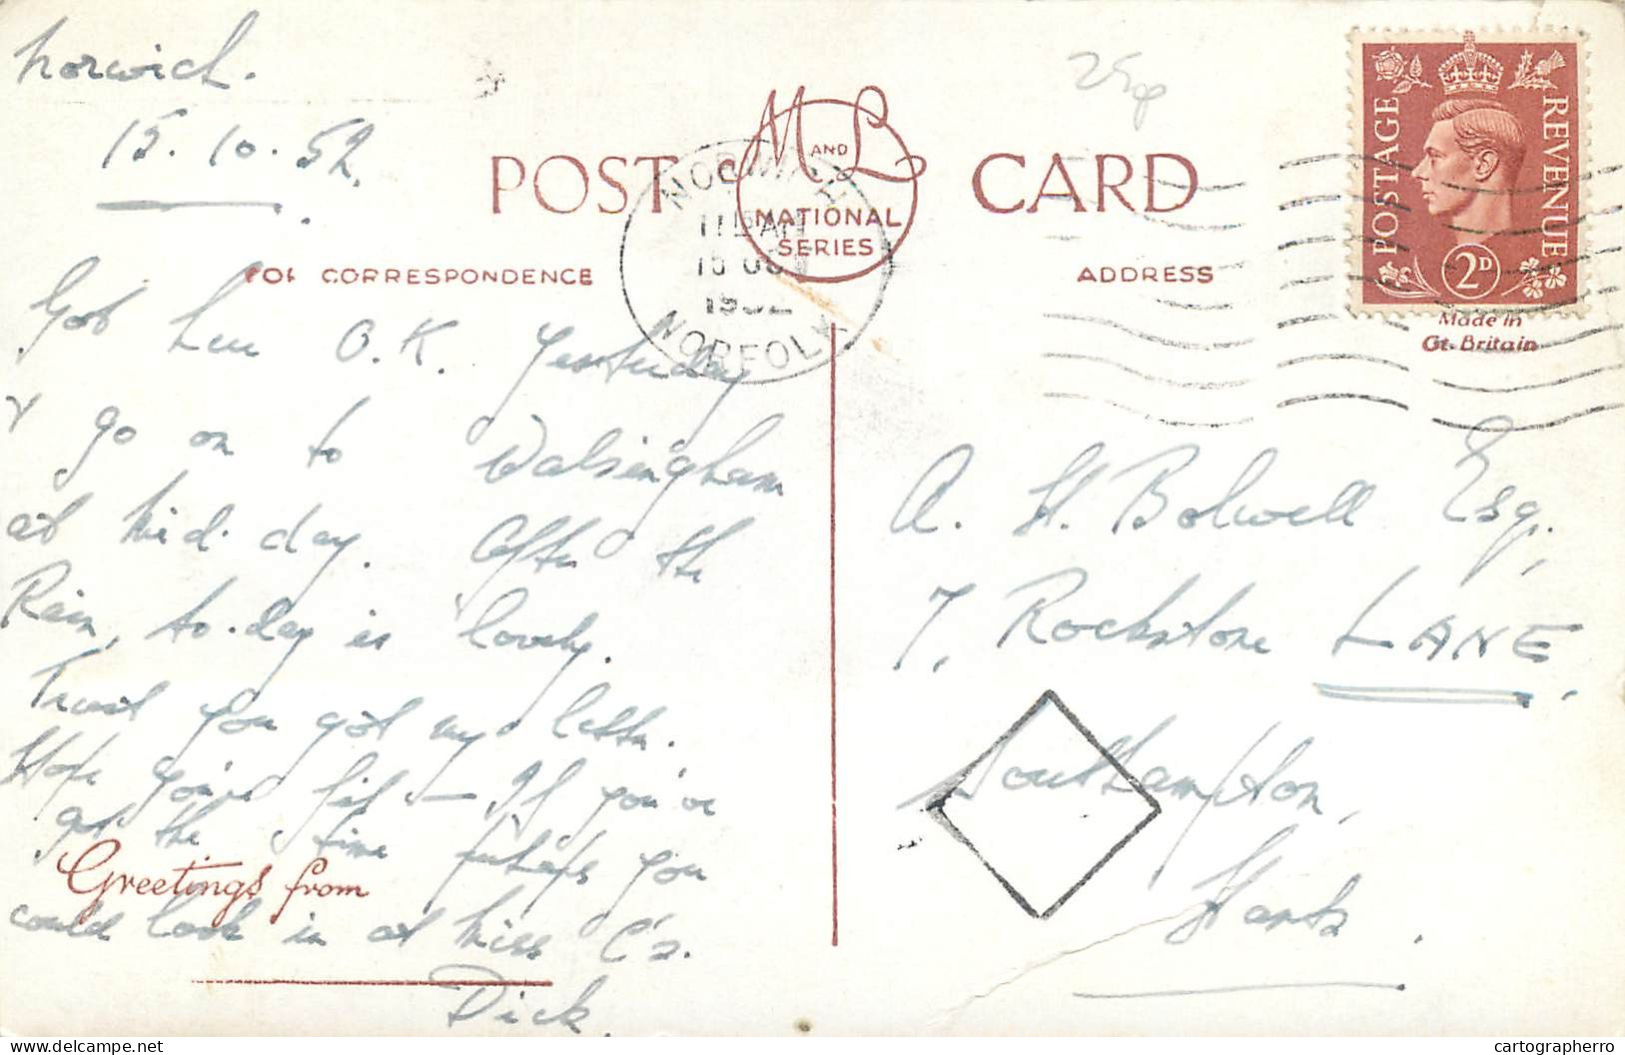 Norwich.
15. 10. 52.
25p
POST CARD
M AND L
NATIONAL
SERIES
NORWICH
1952
NORFOLK
FOR CORRESPONDENCE
ADDRESS
POSTAGE
REVENUE
2D
Made in
Gt. Britain
Got here O.K. Yesterday
& go on to Walsingham
at mid-day. After the
Rain, to-day is lovely.
Trust you got my letter.
Hope you're fit — If you've
got the time perhaps you
could look in at Miss C's.
Dick.
Greetings from
A. H. Bolwell Esq.,
7, Rockstone LANE,
Southampton,
Hants.
Delcampe.net
cartographerro